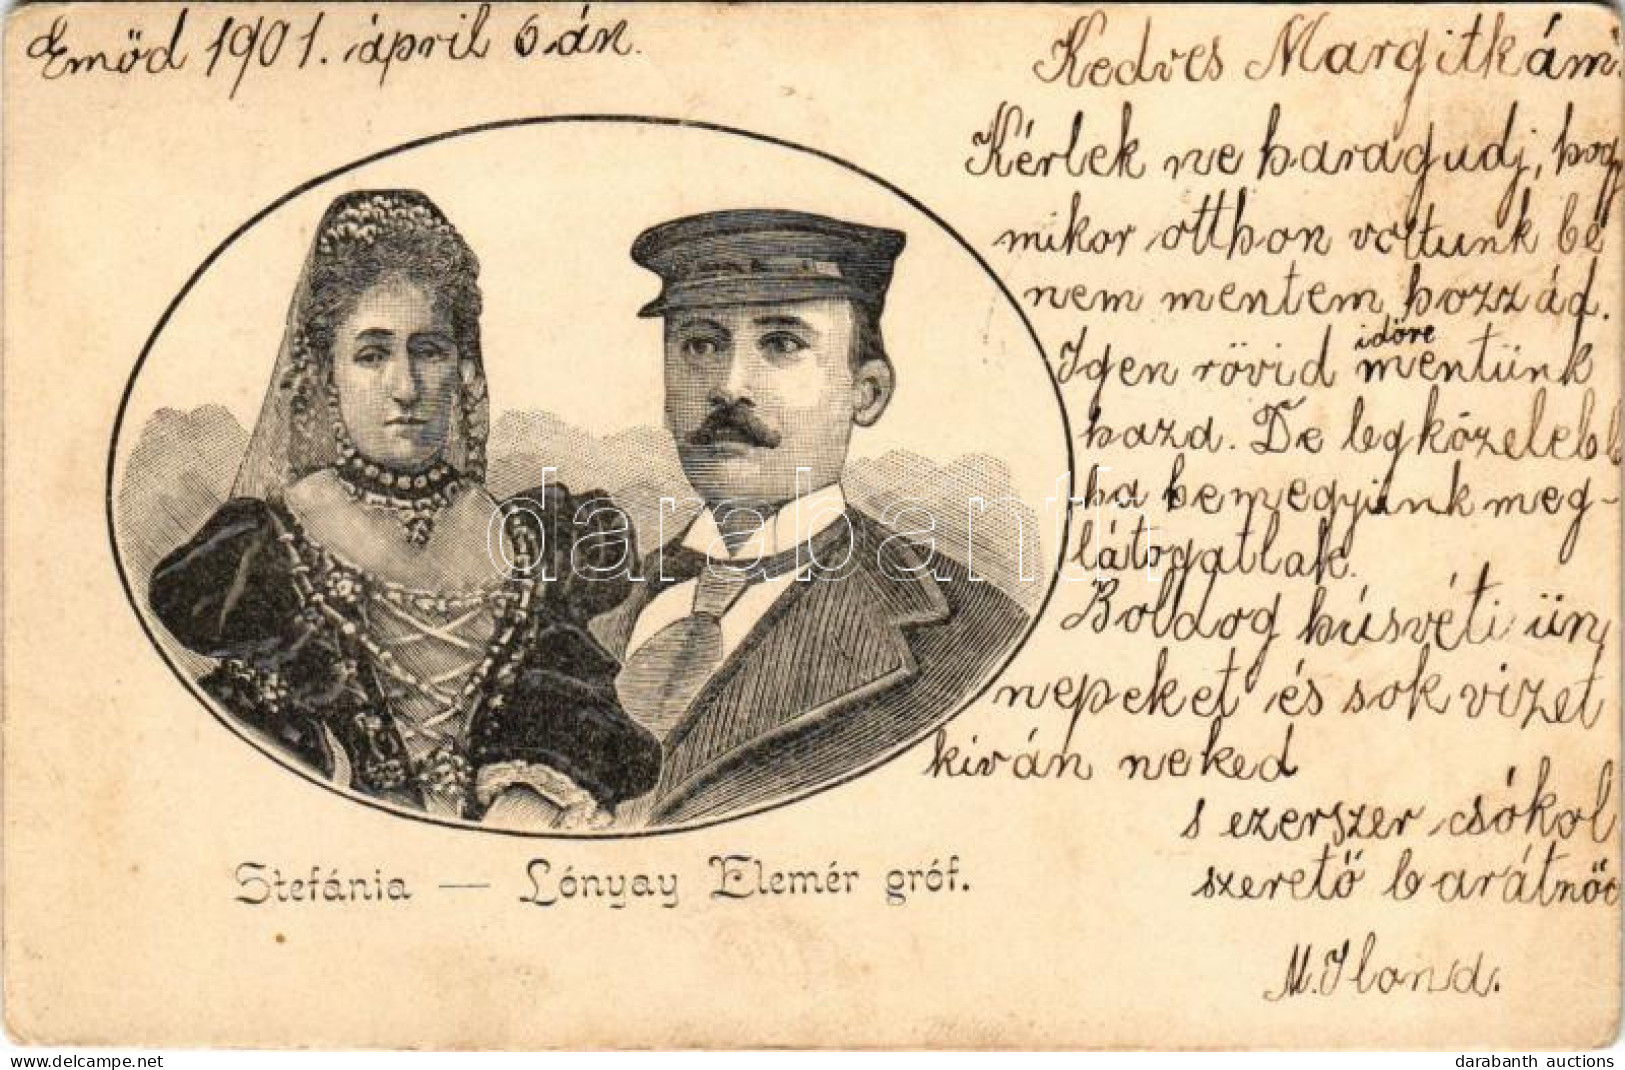 Emőd 1901. ápril 6 án.
Kedves Margitkám!
Kérlek ne haragudj, hogy
mikor otthon voltunk be
nem mentem hozzád.
Igen rövid időre mentünk
haza. De legközelebb
ha bemegyünk meg-
látogatlak.
Boldog húsvéti ün
nepeket és sok vizet
kiván neked
s ezerszer csókol
szerető barátnőd
M. Ilona.
Stefánia — Lónyay Elemér gróf.
darabanth.
delcampe.net
darabanth auctions